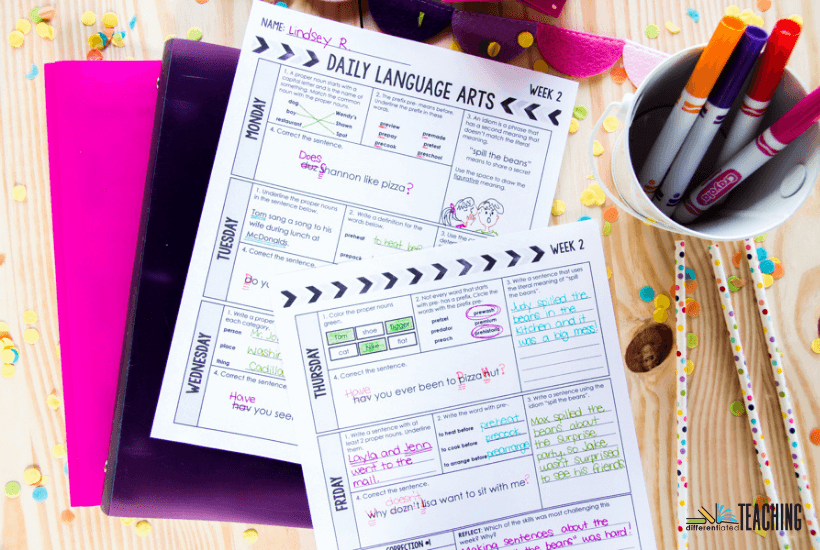 NAME: Lindsey R.
DAILY LANGUAGE ARTS
WEEK 2
MONDAY
1. A proper noun starts with a
capital letter and is the name of
something. Match the common
noun with the proper nouns.
dog
boy
restaurant
Wendy's
Shawn
Spot
2. The prefix pre- means before.
Underline the prefix in these
words.
preview
prepay
precook
premade
preteed
preschool
3. An idiom is a phrase that
has a second meaning that
doesn't match the literal
meaning.
"spill the beans"
means to share a secret
Use the space to draw the
figurative meaning.
4. Correct the sentence.
Does
shannon like pizza?
TUESDAY
1. Underline the proper nouns
in the sentence below.
Tom sang a song to his
wife during lunch at
McDonalds.
2. Write a definition for the
words below.
preheat
to heat
prepack
3. Use the
4. Correct the sentence.
Do you
WEDNESDAY
1. Write a proper
each category
person
place
thing
Washin
Cadilla
4. Correct the sentence.
Have
hav you seen
WEEK 2
THURSDAY
1. Color the proper nouns
green.
Tom
shoe
cat
flat
2. Not every word that starts
with pre- has a prefix. Circle the
words with the prefix pre-
pretzel
predator
preach
prewash
premium
prehistoric
3. Write a sentence that uses
the literal meaning of "spill
the beans".
Judy spilled the
beans in the
kitchen and it
was a big mess!
4. Correct the sentence.
Have
hav you ever been to Pizza Hut?
FRIDAY
1. Write a sentence with at
least 2 proper nouns. Underline
them.
Layla and Jenn
went to the
mall.
2. Write the word with pre-
to heat before preheat
to cook before precook
to arrange before prearrange
3. Write a sentence using the
idiom "spill the beans".
Max spilled the
beans about
the surprise
party, so Jake
wasn't surprised
to see his friends.
4. Correct the sentence.
doesn't
Why dozn't Lisa want to sit with me?
CORRECTION #1
REFLECT: Which of the skills was most challenging this
week? Why?
Making sentences about the
the beans" was hard!
Crayola
differentiated TEACHING